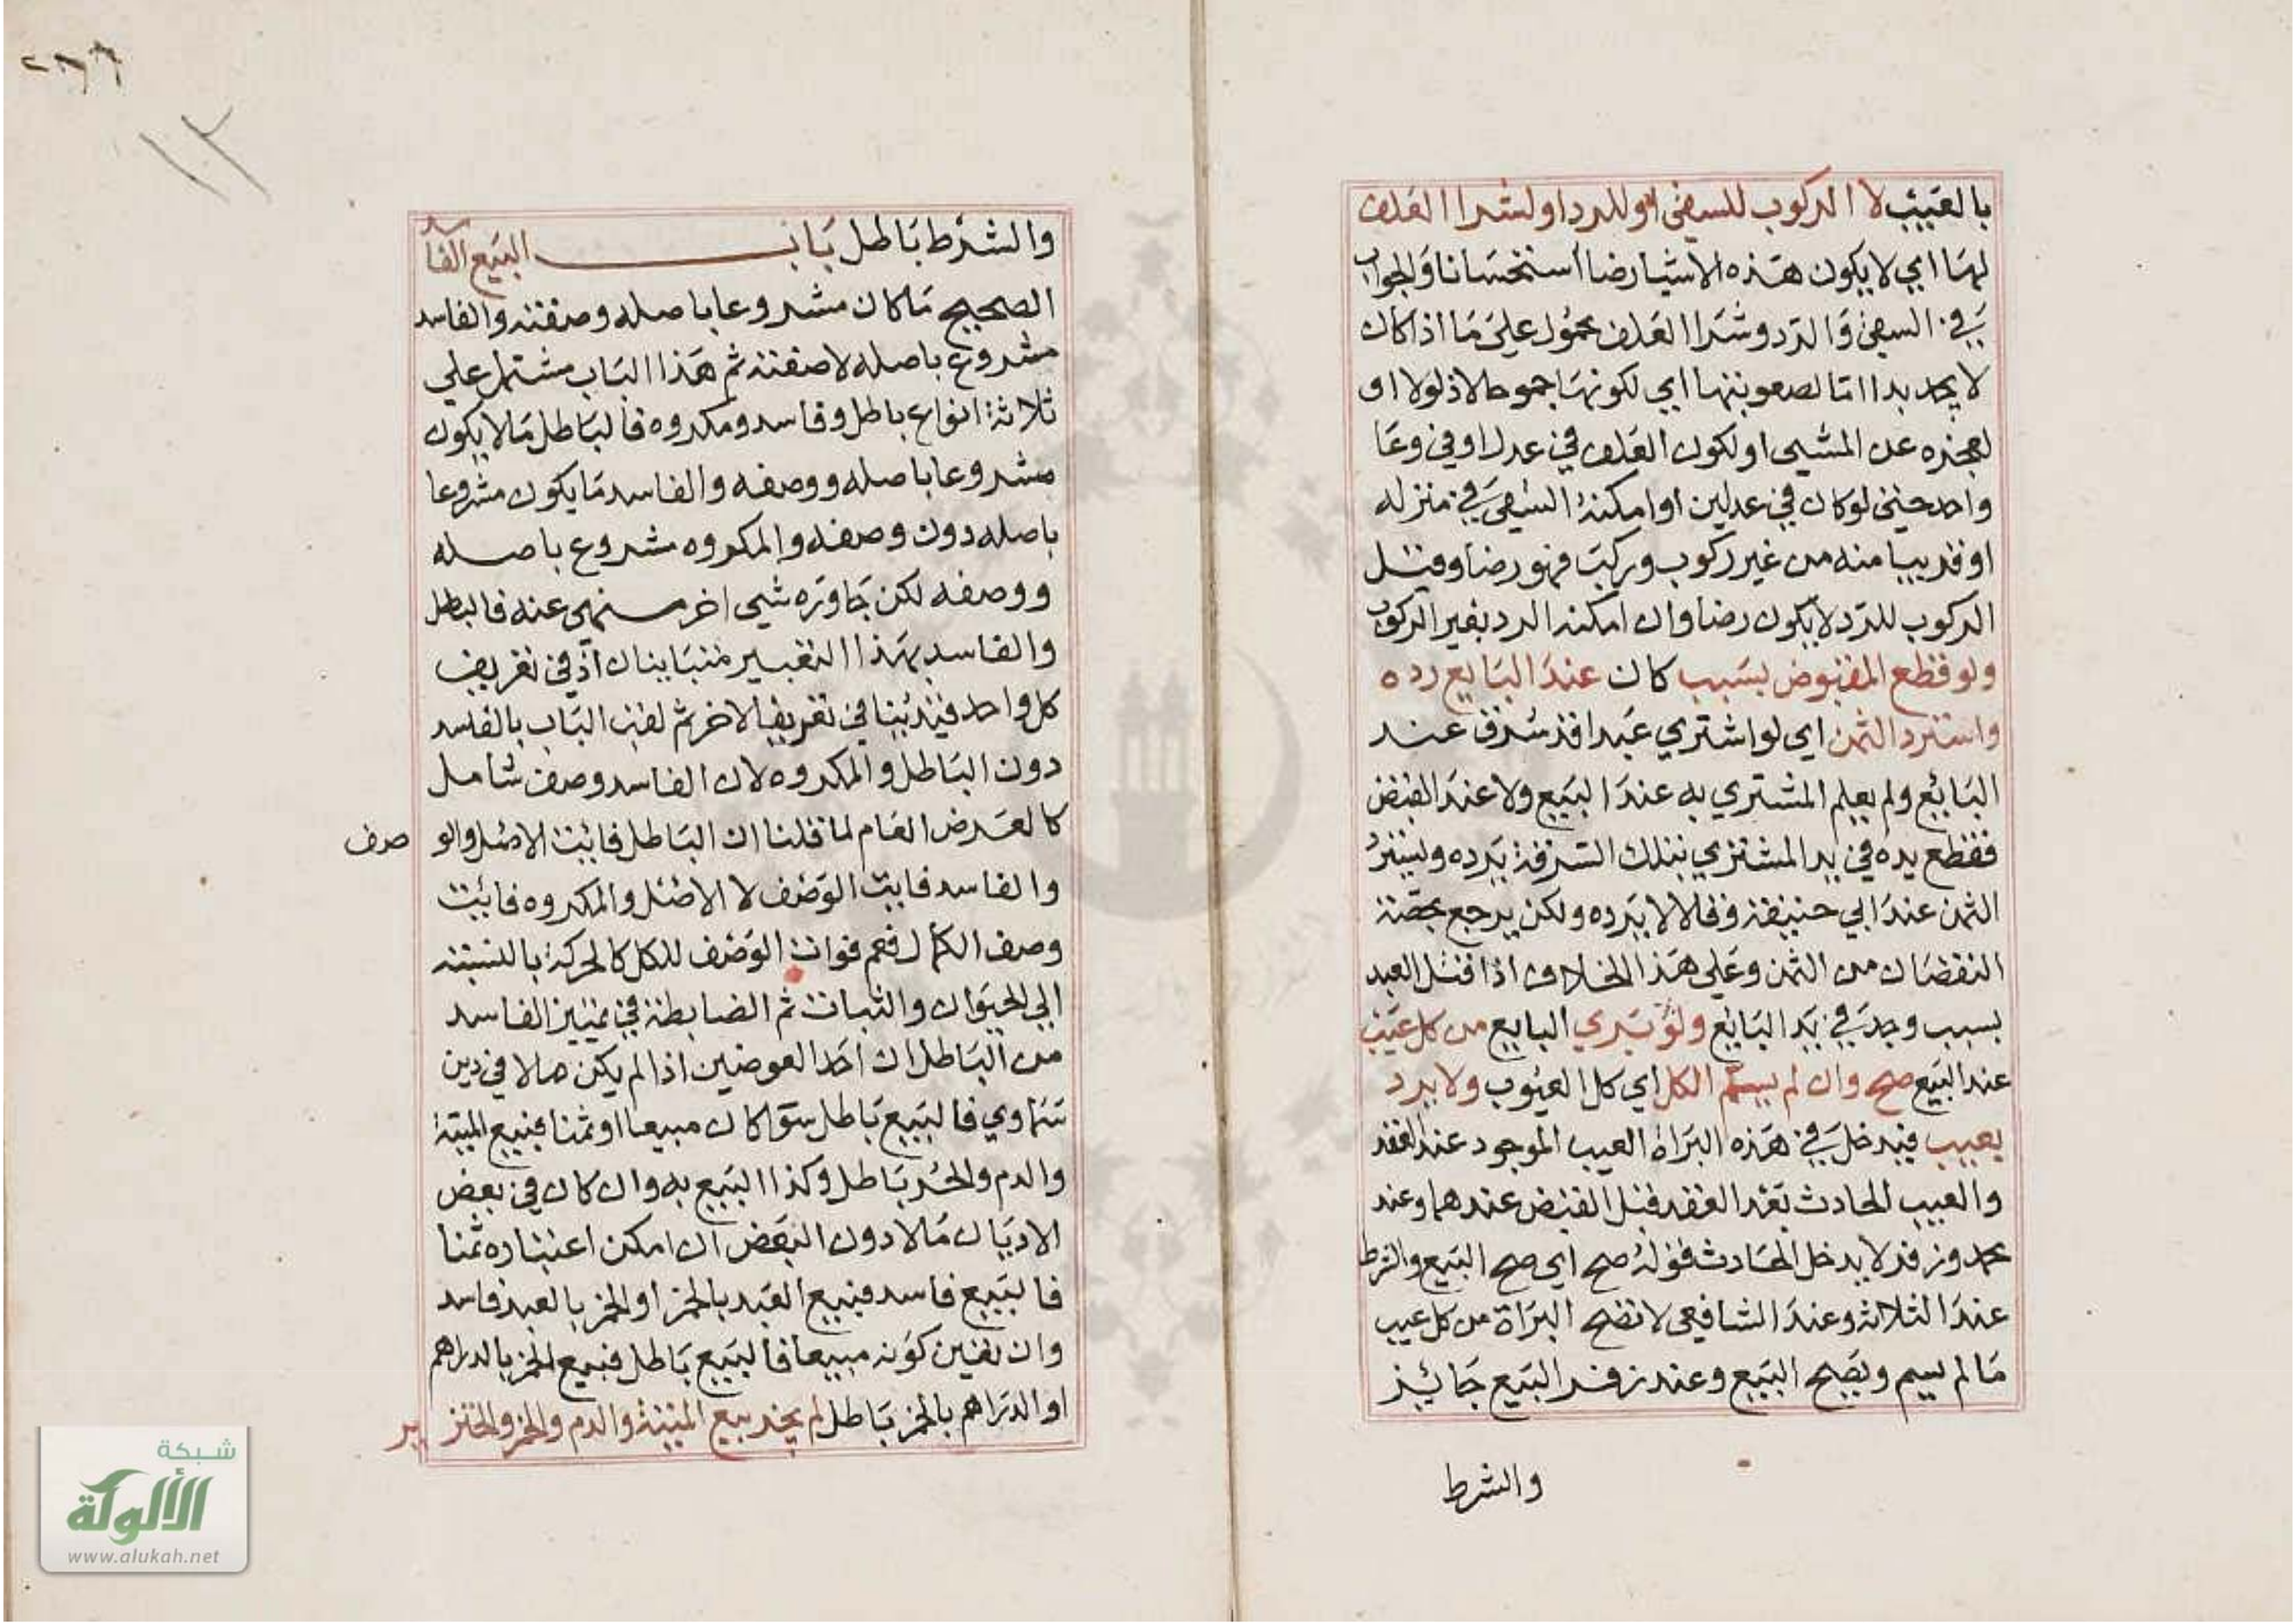 بالعيب لا الركوب للسقي او للرد او لشرا العلف
لها اي لا يكون هذه الاشيا رضا استحسانا والجواب
في السقي والرد وشرا العلف محمول على ما اذا كان
لا يجد بدا اما لصعوبتها اي لكونها جموحا لا ذلولا او
لعجزه عن المشي او لكون العلف في عدل او في وعا
واحد حتى لو كان في عدلين او امكنه السقي في منزله
او قريبا منه من غير ركوب وركب فهو رضا وقيل
الركوب للرد لا يكون رضا وان امكنه الرد بغير الركوب
ولو قطع المقبوض بسبب كان عند البايع رده
واسترد الثمن اي لو اشتري عبدا قد سرق عند
البائع ولم يعلم المشتري به عند البيع ولا عند القبض
فقطع يده في يد المشتري بتلك السرقة يرده ويسترد
الثمن عند ابي حنيفة وقالا لا يرده ولكن يرجع بحصة
النقصان من الثمن وعلى هذا الخلاف اذا قتل العبد
بسبب وجد في يد البائع ولو بري البايع من كل عيب
عند البيع صح وان لم يسم الكل اي كل العيوب ولا يرد
بعيب فيدخل في هذه البراة العيب الموجود عند العقد
والعيب الحادث بعد العقد قبل القبض عندهما وعند
محمد وزفر لا يدخل الحادث قوله صح اي صح البيع والشرط
عند الثلاثة وعند الشافعي لا تصح البراة من كل عيب
ما لم يسم ويصح البيع وعند زفر البيع جائز
والشرط
٢٨٦
١٢
والشرط باطل باب البيع الفاسد
الصحيح ما كان مشروعا باصله وصفته والفاسد
مشروع باصله لا صفته ثم هذا الباب مشتمل علي
ثلاثة انواع باطل وفاسد ومكروه فالباطل ما لا يكون
مشروعا باصله ووصفه والفاسد ما يكون مشروعا
باصله دون وصفه والمكروه مشروع باصله
ووصفه لكن جاوره شيي اخر منهى عنه فالباطل
والفاسد بهذا التفسير متباينان اذ في تعريف
كل واحد قيد ينافي تعريف الاخر ثم لقب الباب بالفاسد
دون الباطل والمكروه لان الفاسد وصف شامل
كالعرض العام لما قلنا ان الباطل فائت الاصل والو صف
والفاسد فايت الوصف لا الاصل والمكروه فائت
وصف الكمال فعم فوات الوصف للكل كالحركة بالنسبة
الي الحيوان والنبات ثم الضابطة في تمييز الفاسد
من الباطل ان احد العوضين اذا لم يكن مالا في دين
سماوي فالبيع باطل سوا كان مبيعا او ثمنا فبيع الميتة
والدم والحر باطل وكذا البيع به وان كان في بعض
الاديان مالا دون البعض ان امكن اعتباره ثمنا
فالبيع فاسد فبيع العبد بالخمر او الخمر بالعبد فاسد
وان تعين كونه مبيعا فالبيع باطل فبيع الخمر بالدراهم
او الدراهم بالخمر باطل لم يجز بيع الميتة والدم والخمر والخنزير
شبكة
الألوكة
www.alukah.net